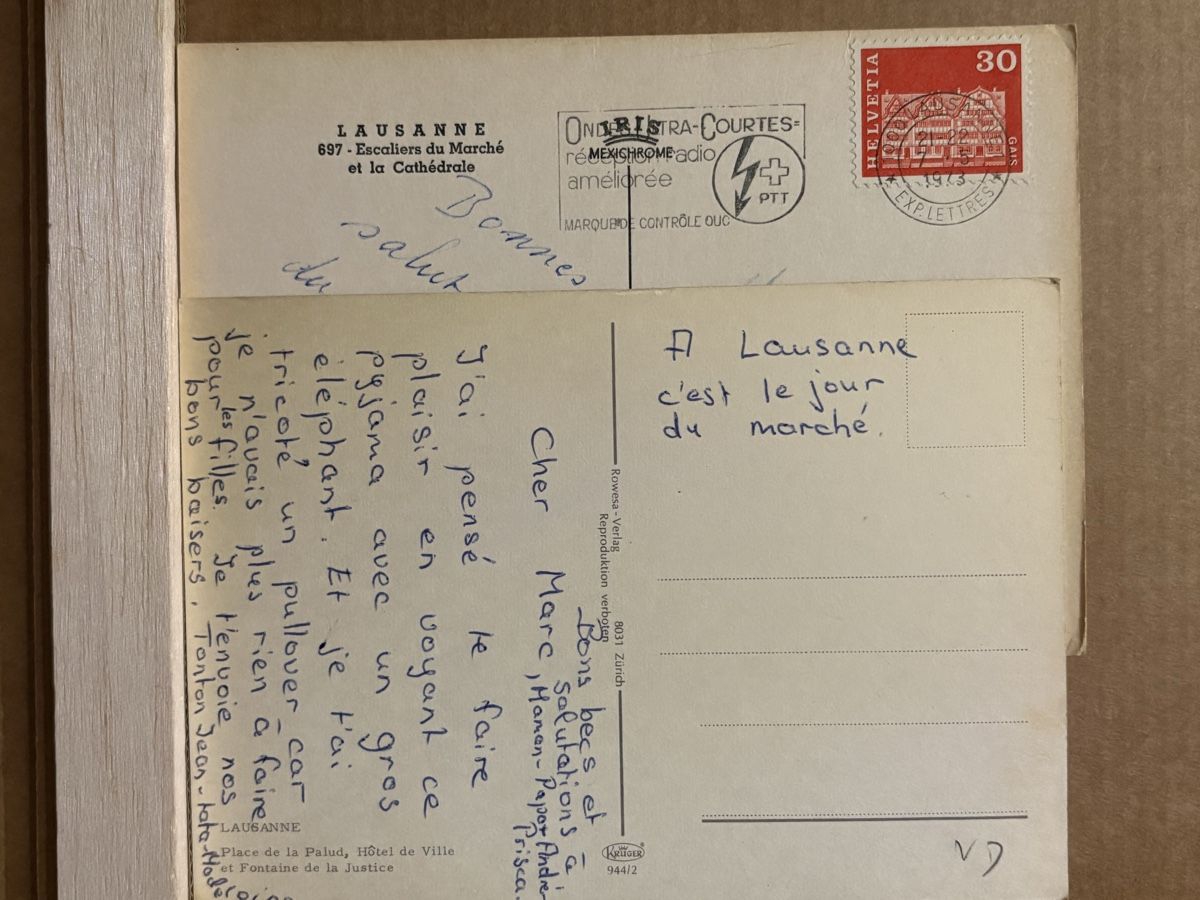 LAUSANNE
697 - Escaliers du Marché
et la Cathédrale
IRIS
MEXICHROME
ONDES ULTRA-COURTES=
réception radio
améliorée
MARQUE DE CONTRÔLE OUC
PTT
HELVETIA
30
GAIS
1000 LAUSANNE
21-22
1973
EXP. LETTRES
Bonnes
salut
du
A Lausanne
c'est le jour
du marché.
Cher Marc,
J'ai pensé te faire
plaisir en voyant ce
pyjama avec un gros
eléphant. Et je t'ai
tricoté un pullover - car
je n'avais plus rien à faire
pour les filles. Je t'envoie nos
bons baisers. Tonton Jean - tata-Made
Bons becs et
salutations à
Maman - Papa + André
Prisca.
Rowesa - Verlag 8031 Zürich
Reproduktion verboten
LAUSANNE
Place de la Palud, Hôtel de Ville
et Fontaine de la Justice
KRÜGER
944/2
VD